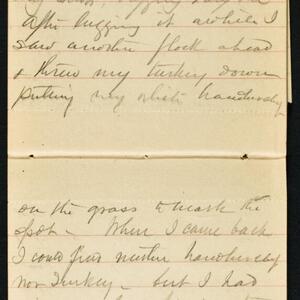 After lugging it awhile I
saw another flock ahead
& threw my turkey down
putting my white handkerchf
on the grass to mark the
spot - When I came back
I could find neither handkerchf
nor Turkey - but I had